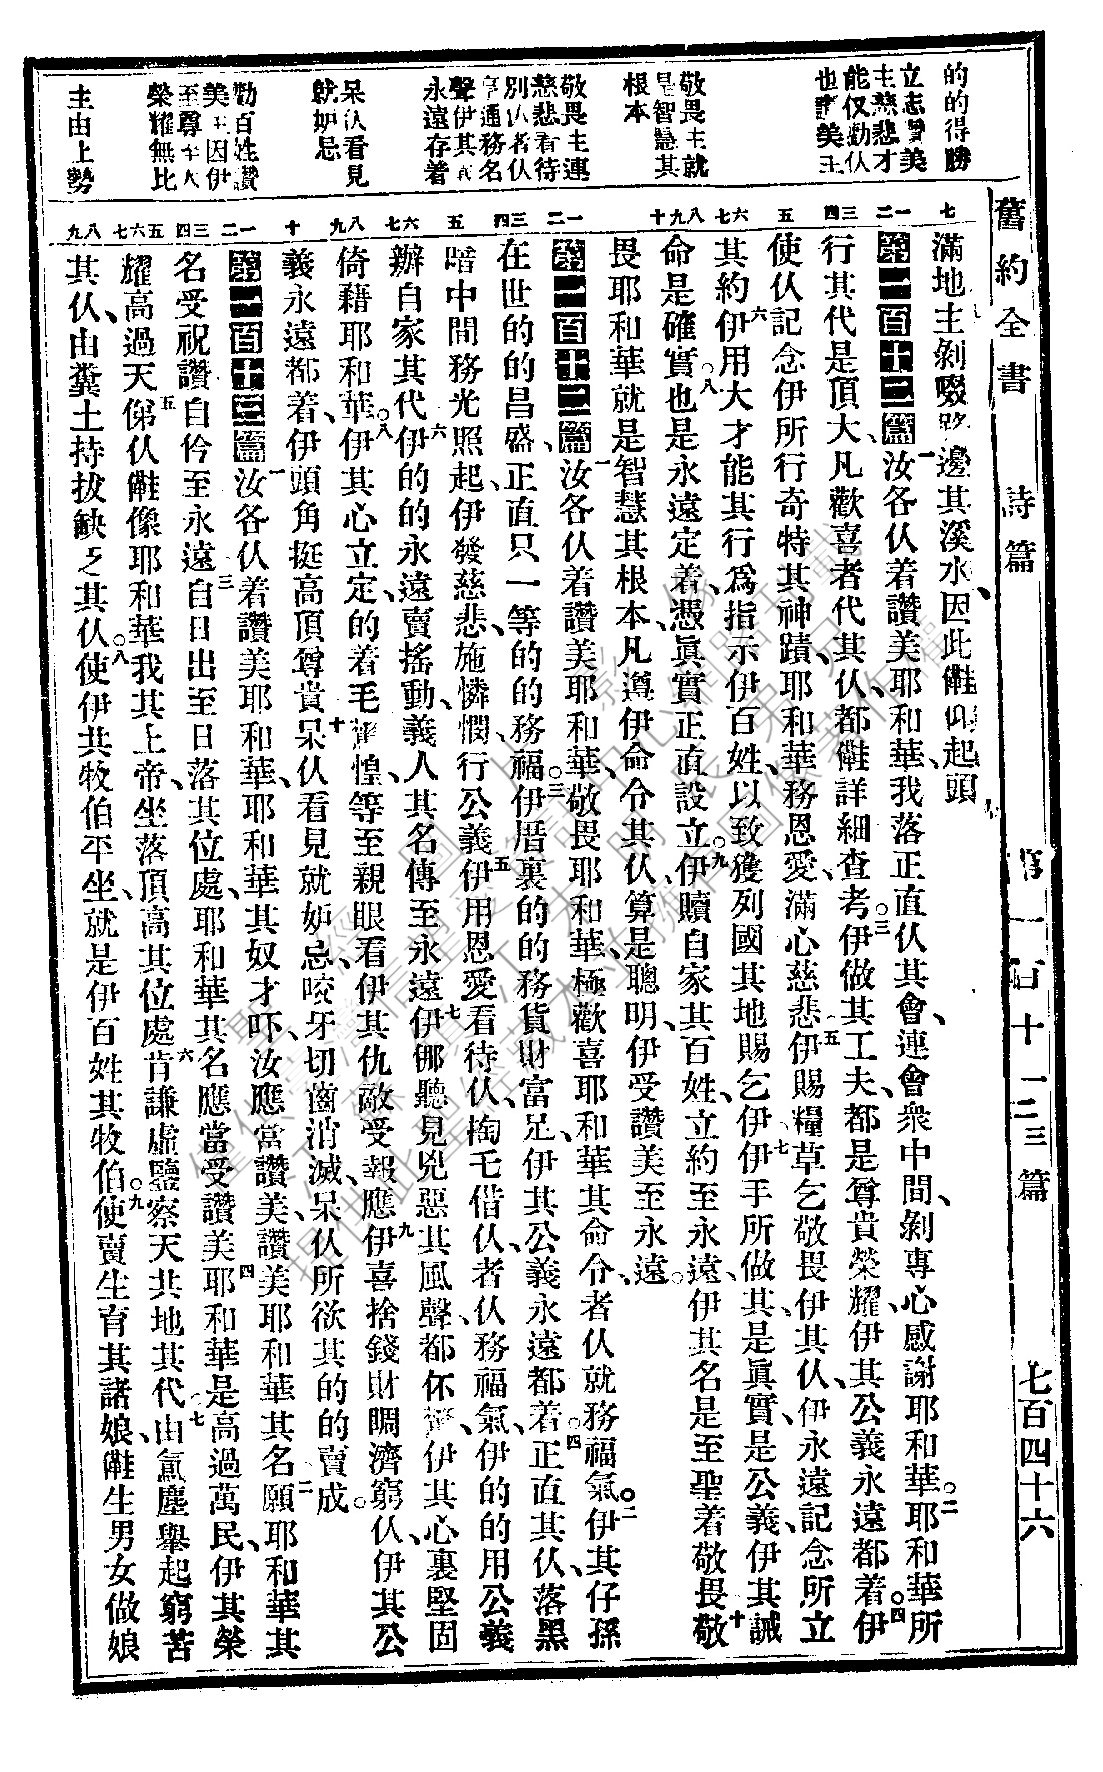 舊約全書　詩篇　第一百十一二三篇　七百四十六
的的得勝
立志讚美
主慈悲才
能仅勸仈
也讚美主
敬畏主就
是智慧其
根本
敬畏主連
慈悲看待
別仈者仈
亨通務名
聲伊其義
永遠存着
呆仈看見
就妒忌
勸百姓讚
美主因伊
至尊至大
榮耀無比
主由上勢
七
滿地主剝啜路邊其溪水、因此㒕仰起頭
一二
第一百十一篇汝各仈着讚美耶和華、我落正直仈其會連會衆中間、剝專心感謝耶和華。二耶和華所
三四
行其代是頂大、凡歡喜者代其仈、都㒕詳細查考。三伊做其工夫都是尊貴榮耀、伊其公義永遠都着。四伊
五
使仈記念伊所行奇特其神蹟、耶和華務恩愛、滿心慈悲五伊賜糧草乞敬畏伊其仈、伊永遠記念所立
六七
其約六伊用大才能其行爲指示伊百姓、以致獲列國其地賜乞伊七伊手所做其、是眞實、是公義、伊其誡
八九十
命是確實也是永遠定着、憑眞實正直設立。九伊贖自家其百姓、立約至永遠、伊其名是至聖着敬畏十敬
畏耶和華就是智慧其根本、凡遵伊命令其仈、算是聰明、伊受讚美至永遠。
一二
第一百十二篇汝各仈着讚美耶和華、敬畏耶和華、極歡喜耶和華其命令者仈就務福氣。二伊其仔孫
三四
在世的的昌盛、正直只一等的的務福。三伊厝裏的的務貨財富足、伊其公義永遠都着。四正直其仈、落黑
五
暗中間務光照起、伊發慈悲、施憐憫、行公義五伊用恩愛看待仈、掏乇借仈者仈務福氣、伊的的用公義
六七
辦自家其代六伊的的永遠賣搖動、義人其名傳至永遠七伊㑚聽見兇惡其風聲、都伓驚、伊其心裏堅固
八九
倚藉耶和華。八伊其心立定、的着毛驚惶、等至親眼看伊其仇敵受報應九伊喜捨錢財賙濟窮仈、伊其公
十
義永遠都着、伊頭角挺高頂尊貴十呆仈看見就妒忌、咬牙切齒消滅、呆仈所欲其的的賣成。
一二
第一百十三篇汝各仈着讚美耶和華、耶和華其奴才吓、汝應當讚美、讚美耶和華其名二願耶和華其
三四
名受祝讚自伱至永遠三自日出至日落其位處、耶和華其名應當受讚美四耶和華是高過萬民、伊其榮
五六七
耀高過天五㑚仈㒕像耶和華我其上帝、坐落頂高其位處六肯謙虛鑒察天共地其代七由𪫧塵舉起窮苦
八九
其仈、由糞土持拔缺乏其仈。八使伊共牧伯平坐、就是伊百姓其牧伯。九使賣生育其諸娘、㒕生男女做娘